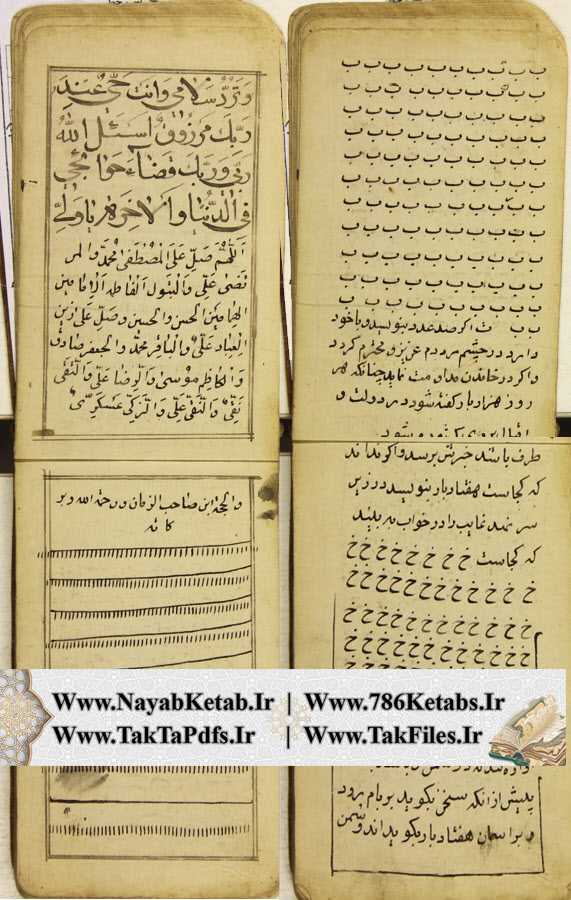 وترد سلامی وانت حی عند
ربک مرزوق اسئل الله
ربی وربک قضاء حوائجی
فی الدنیا والاخرة یا ولی
اللهم صل علی المصطفی محمد والمر
تضی علی والبتول الفاطمه
الحسن والحسین وصل علی زین
العباد علی والباقر محمد والجعفر صادق
والکاظم موسی والرضا علی والتقی
نقی والنقی علی والزکی عسکری
والحجة ابن صاحب الزمان ورحمة الله وبر
کاته
ب ب ب ب ب ب ب ب ب ب
ب ب ب ب ب ب ب ب ب ب
ب ب ب ب ب ب ب ب ب ب
ب ب ب ب ب ب ب ب ب ب
ب ب ب ب ب ب ب ب ب ب
ب ب ب ب ب ب ب ب ب ب
ب ب ب ب ب ب ب ب ب ب
ب ب ب ب ب ب ب ب ب ب
ب ب ب ب ب ب ب ب ب ب
ب ب ب ب ب ب ب ب ب ب
ب ب ب ب ب ب ب ب ب ب
ب ب اگر صد عدد بنویسد و باخود
دارد در چشم مردم عزیز و محترم گردد
واگر در خاندن مداومت نماید چنانکه هر
روز هزار بار گفته شود در دولت و
اقبال بروی
طرف باشد خبرش برسد واگر نداند
که کجاست هفتاد بار بنویسد در زیر
سر نهد غایب را در خواب به بیند
که کجاست خ خ خ خ خ خ خ خ
خ خ خ خ خ خ خ خ خ خ
خ خ خ خ خ خ خ خ خ خ
خ خ خ خ خ خ خ خ خ خ
Www.NayabKetab.Ir | Www.786Ketabs.Ir
Www.TakTaPdfs.Ir | Www.TakFiles.Ir
پیش از آنکه سخن بگوید بر بام رود
و بر اسمان هفتاد بار بگوید